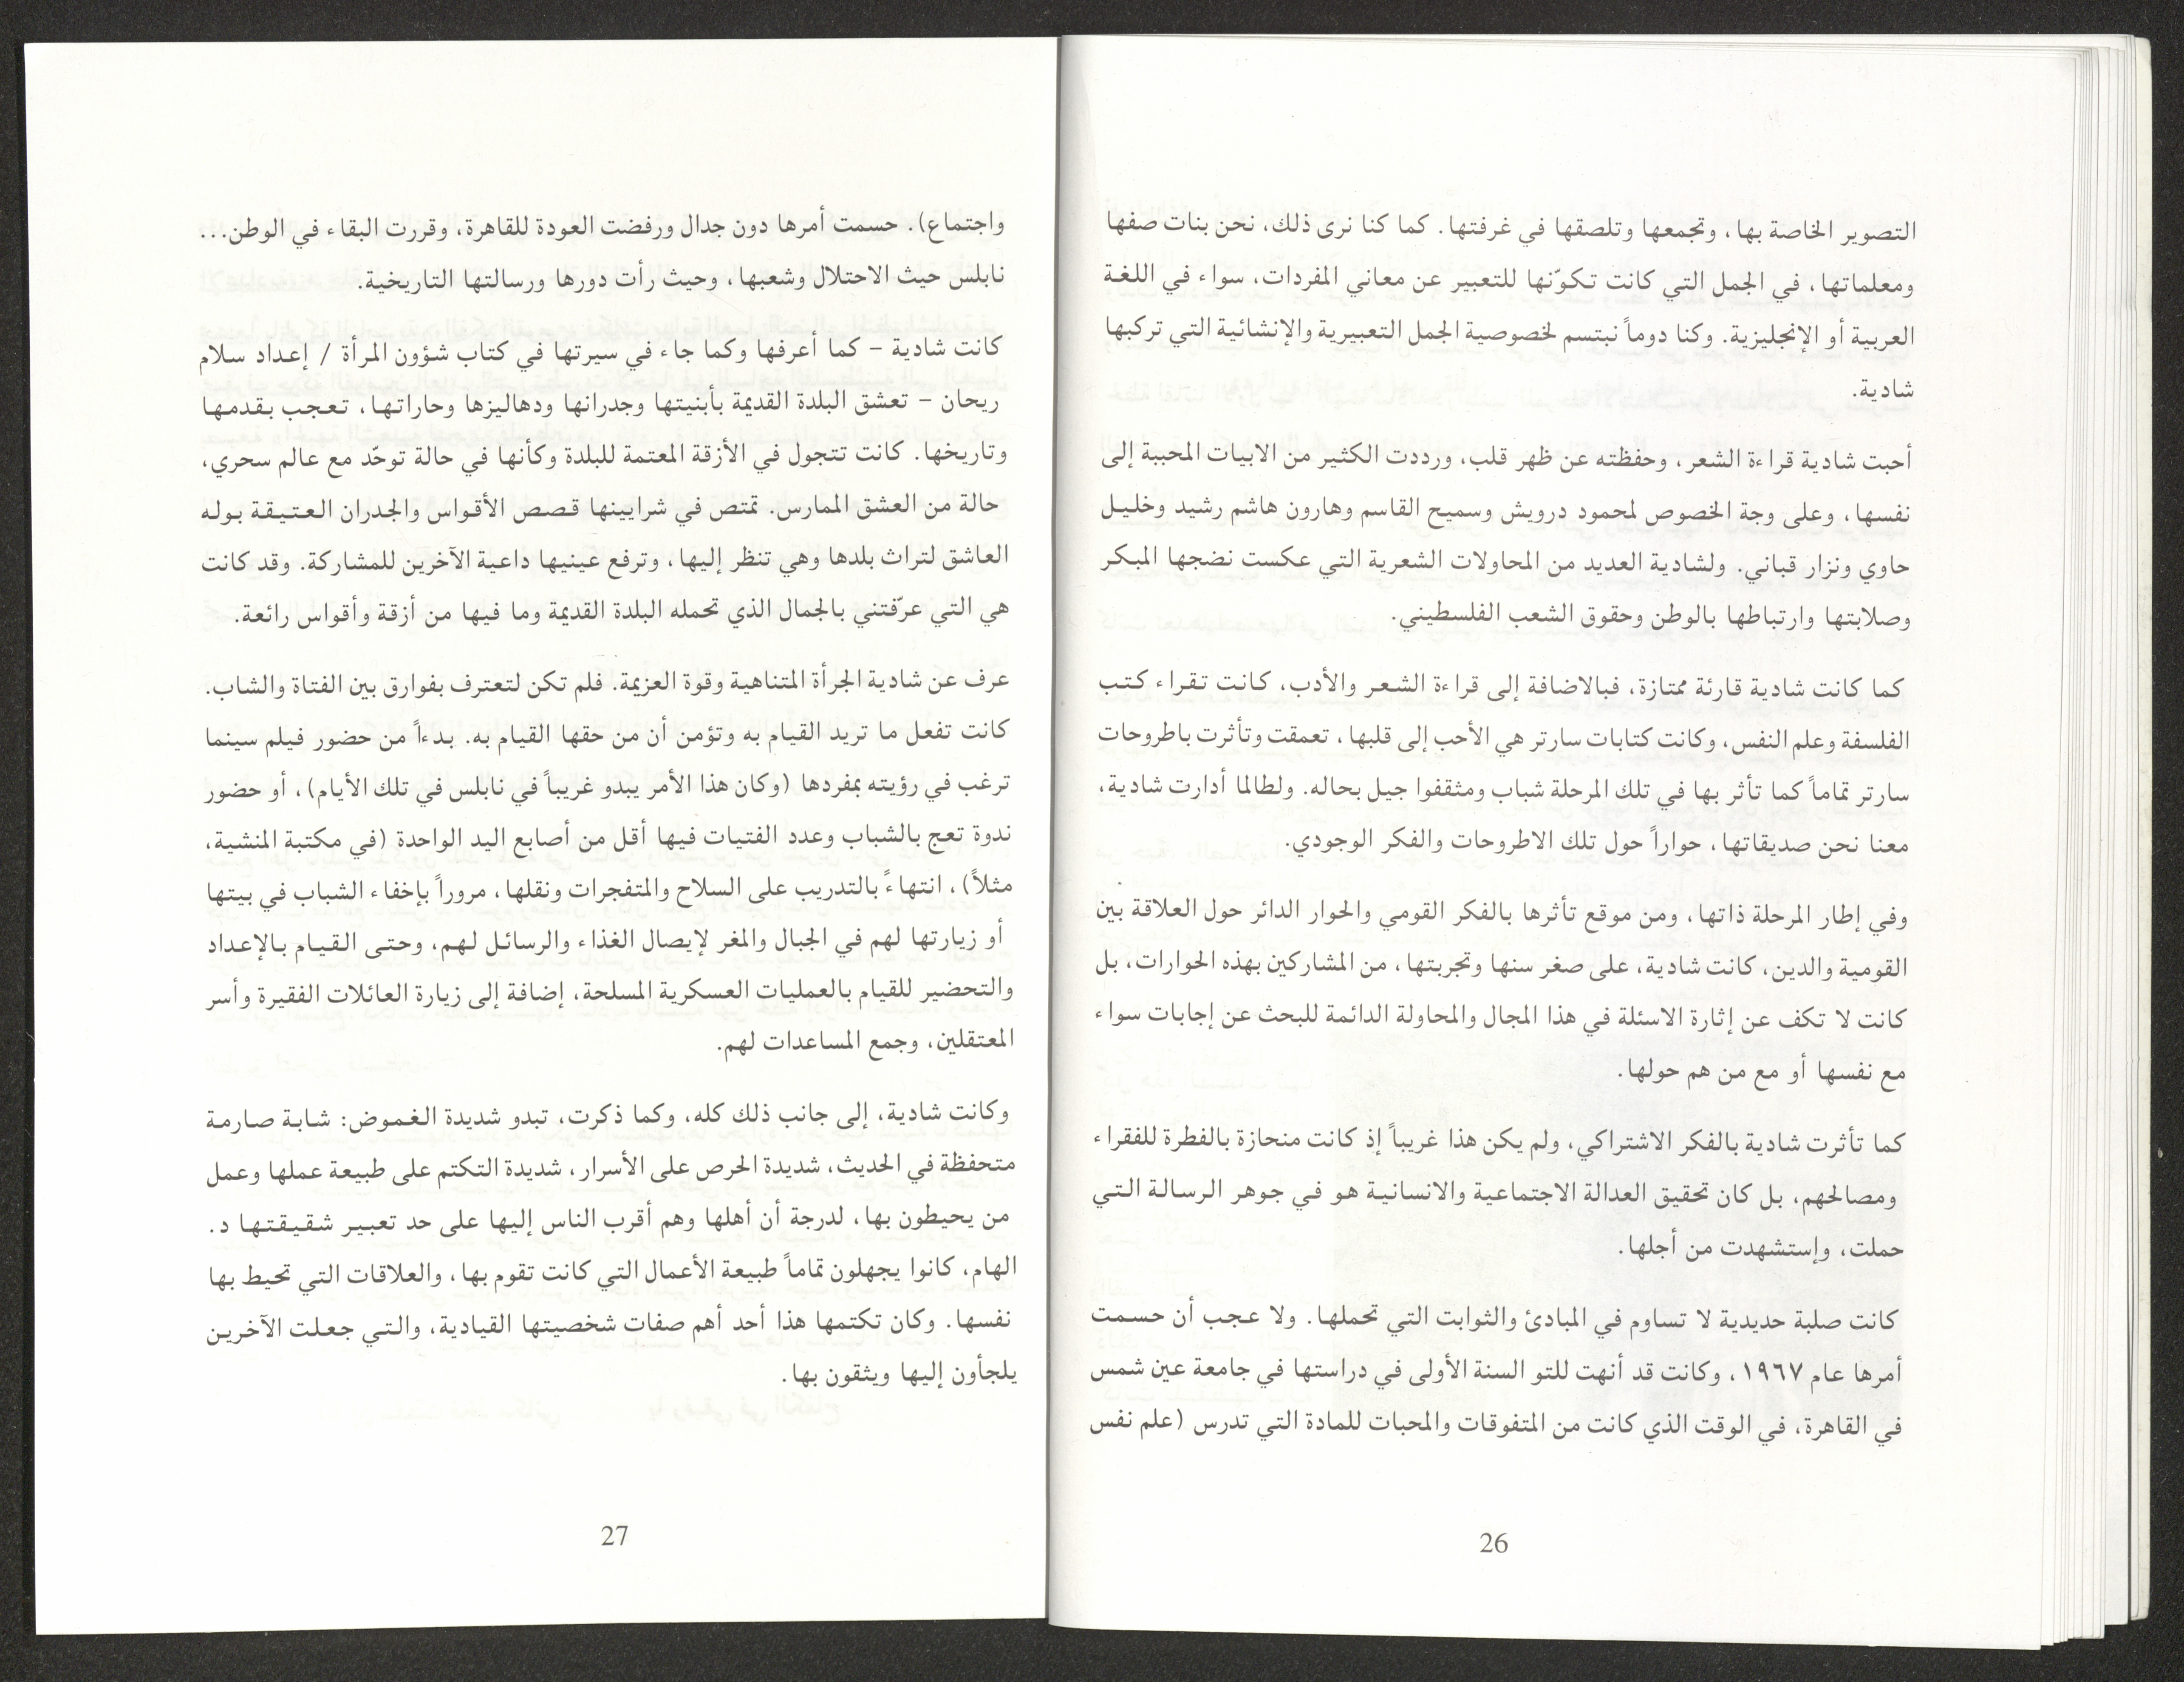 التصوير الخاصة بها، وتجمعها وتلصقها في غرفتها. كما كنا نرى ذلك، نحن بنات صفها
ومعلماتها، في الجمل التي كانت تكوّنها للتعبير عن معاني المفردات، سواء في اللغة
العربية أو الإنجليزية. وكنا دوماً نبتسم لخصوصية الجمل التعبيرية والإنشائية التي تركبها
شادية.
أحبت شادية قراءة الشعر، وحفظته عن ظهر قلب، ورددت الكثير من الابيات المحببة إلى
نفسها، وعلى وجة الخصوص لمحمود درويش وسميح القاسم وهارون هاشم رشيد وخليل
حاوي ونزار قباني. ولشادية العديد من المحاولات الشعرية التي عكست نضجها المبكر
وصلابتها وارتباطها بالوطن وحقوق الشعب الفلسطيني.
كما كانت شادية قارئة ممتازة، فبالاضافة إلى قراءة الشعر والأدب، كانت تقراء كتب
الفلسفة وعلم النفس، وكانت كتابات سارتر هي الأحب إلى قلبها، تعمقت وتأثرت باطروحات
سارتر تماماً كما تأثر بها في تلك المرحلة شباب ومثقفوا جيل بحاله. ولطالما أدارت شادية،
معنا نحن صديقاتها، حواراً حول تلك الاطروحات والفكر الوجودي.
وفي إطار المرحلة ذاتها، ومن موقع تأثرها بالفكر القومي والحوار الدائر حول العلاقة بين
القومية والدين، كانت شادية، على صغر سنها وتجربتها، من المشاركين بهذه الحوارات، بل
كانت لا تكف عن إثارة الاسئلة في هذا المجال والمحاولة الدائمة للبحث عن إجابات سواء
مع نفسها أو مع من هم حولها.
كما تأثرت شادية بالفكر الاشتراكي، ولم يكن هذا غريباً إذ كانت منحازة بالفطرة للفقراء
ومصالحهم، بل كان تحقيق العدالة الاجتماعية والانسانية هو في جوهر الرسالة التي
حملت، وإستشهدت من أجلها.
كانت صلبة حديدية لا تساوم في المبادئ والثوابت التي تحملها. ولا عجب أن حسمت
أمرها عام ١٩٦٧، وكانت قد أنهت للتو السنة الأولى في دراستها في جامعة عين شمس
في القاهرة، في الوقت الذي كانت من المتفوقات والمحبات للمادة التي تدرس (علم نفس
26
واجتماع). حسمت أمرها دون جدال ورفضت العودة للقاهرة، وقررت البقاء في الوطن...
نابلس حيث الاحتلال وشعبها، وحيث رأت دورها ورسالتها التاريخية.
كانت شادية – كما أعرفها وكما جاء في سيرتها في كتاب شؤون المرأة / إعداد سلام
ريحان – تعشق البلدة القديمة بأبنيتها وجدرانها ودهاليزها وحاراتها، تعجب بقدمها
وتاريخها. كانت تتجول في الأزقة المعتمة للبلدة وكأنها في حالة توحّد مع عالم سحري،
حالة من العشق الممارس. تمتص في شرايينها قصص الأقواس والجدران العتيقة بوله
العاشق لتراث بلدها وهي تنظر إليها، وترفع عينيها داعية الآخرين للمشاركة. وقد كانت
هي التي عرّفتني بالجمال الذي تحمله البلدة القديمة وما فيها من أزقة وأقواس رائعة.
عرف عن شادية الجرأة المتناهية وقوة العزيمة. فلم تكن لتعترف بفوارق بين الفتاة والشاب.
كانت تفعل ما تريد القيام به وتؤمن أن من حقها القيام به. بدءاً من حضور فيلم سينما
ترغب في رؤيته بمفردها (وكان هذا الأمر يبدو غريباً في نابلس في تلك الأيام)، أو حضور
ندوة تعج بالشباب وعدد الفتيات فيها أقل من أصابع اليد الواحدة (في مكتبة المنشية،
مثلاً)، انتهاءً بالتدريب على السلاح والمتفجرات ونقلها، مروراً بإخفاء الشباب في بيتها
أو زيارتها لهم في الجبال والمغر لإيصال الغذاء والرسائل لهم، وحتى القيام بالإعداد
والتحضير للقيام بالعمليات العسكرية المسلحة، إضافة إلى زيارة العائلات الفقيرة وأسر
المعتقلين، وجمع المساعدات لهم.
وكانت شادية، إلى جانب ذلك كله، وكما ذكرت، تبدو شديدة الغموض: شابة صارمة
متحفظة في الحديث، شديدة الحرص على الأسرار، شديدة التكتم على طبيعة عملها وعمل
من يحيطون بها، لدرجة أن أهلها وهم أقرب الناس إليها على حد تعبير شقيقتها د.
الهام، كانوا يجهلون تماماً طبيعة الأعمال التي كانت تقوم بها، والعلاقات التي تحيط بها
نفسها. وكان تكتمها هذا أحد أهم صفات شخصيتها القيادية، والتي جعلت الآخرين
يلجأون إليها ويثقون بها.
27